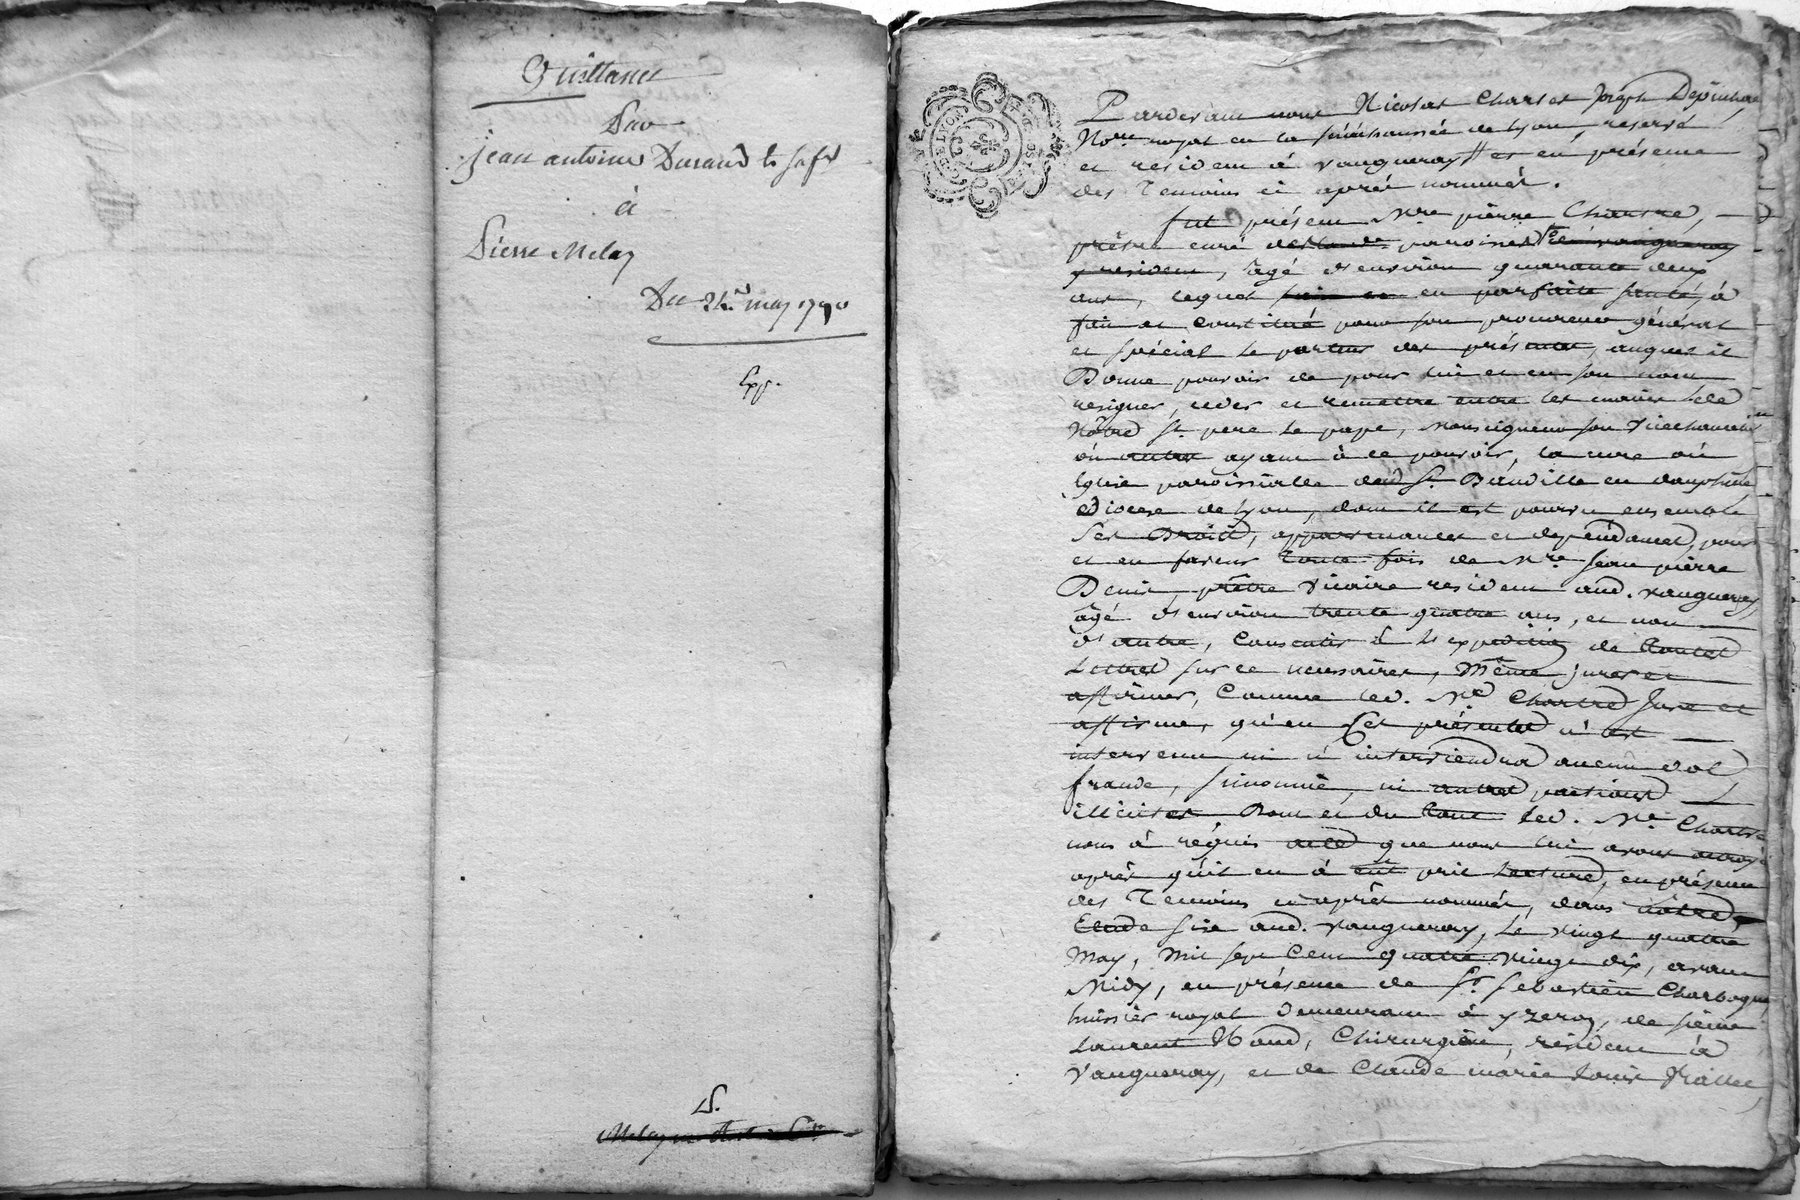 Quittance
Par
jean antoine Durand
à
Pierre Melay
Du 24 may 1790
Exp.
DE LYON
Pardevant nous Nicolas Charles Joseph
Nore royal en la sénéchaussée de Lyon, reservé
et résident à vaugneray et en présence
des Temoins ci après nommés.
fut présent Mre pierre Chartre,
prêtre curé paroisse
agé d'environ quarante deux
ans, lequel en parfaite santé, à
fait et constitué pour son procureur général
et spécial le porteur des présentes, auquel il
Donne pouvoir de pour lui et en son nom
resigner, ceder et remettre entre les mains de
Nôtre St. pere le pape, Monseigneur son Vicechancelier
ou autre ayant à ce pouvoir, la cure ou
Eglise paroissialle de St. Bandille en dauphiné
Diocese de Lyon, dont il est pourvu ensemble
Ses Droits, appartenances et dépendances, pour
et en faveur toute fois de Mre Jean pierre
Denis prêtre Vicaire resident aud. vaugneray
âgé d'environ trente quatre ans, et non
d'autre, Consentir à l'expedition de toutes
Lettres sur ce necessaires, Même jurer et
affirmer, Comme led. Mre Chartre Jure et
affirme, qu'en Ces présentes n'est
intervenu ni n'interviendra aucun dol
fraude, simonnie, ni autres pactions
illicites Dont et du tout led. Mre Chartre
nous à réquis acte que nous lui avons octroyé
après qu'il en à eut pris Lecture, en présence
des Temoins ci après nommés, dans nôtre
Etude sise aud. vaugneray, Le vingt quatre
May, Mil sept Cent quatre vingt dix, avant
Midy, en présence de Sr. Sebastien
huissier royal Demeurant à yzeron, de sieur
Laurent Chirurgien, résident à
Vaugneray, et de Claude marie Louis